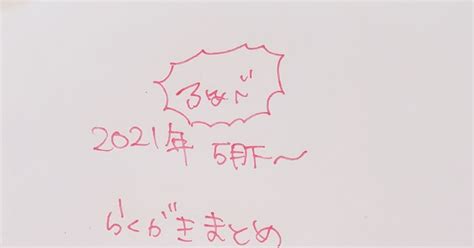 2021年 5月下〜
らくがきまとめ